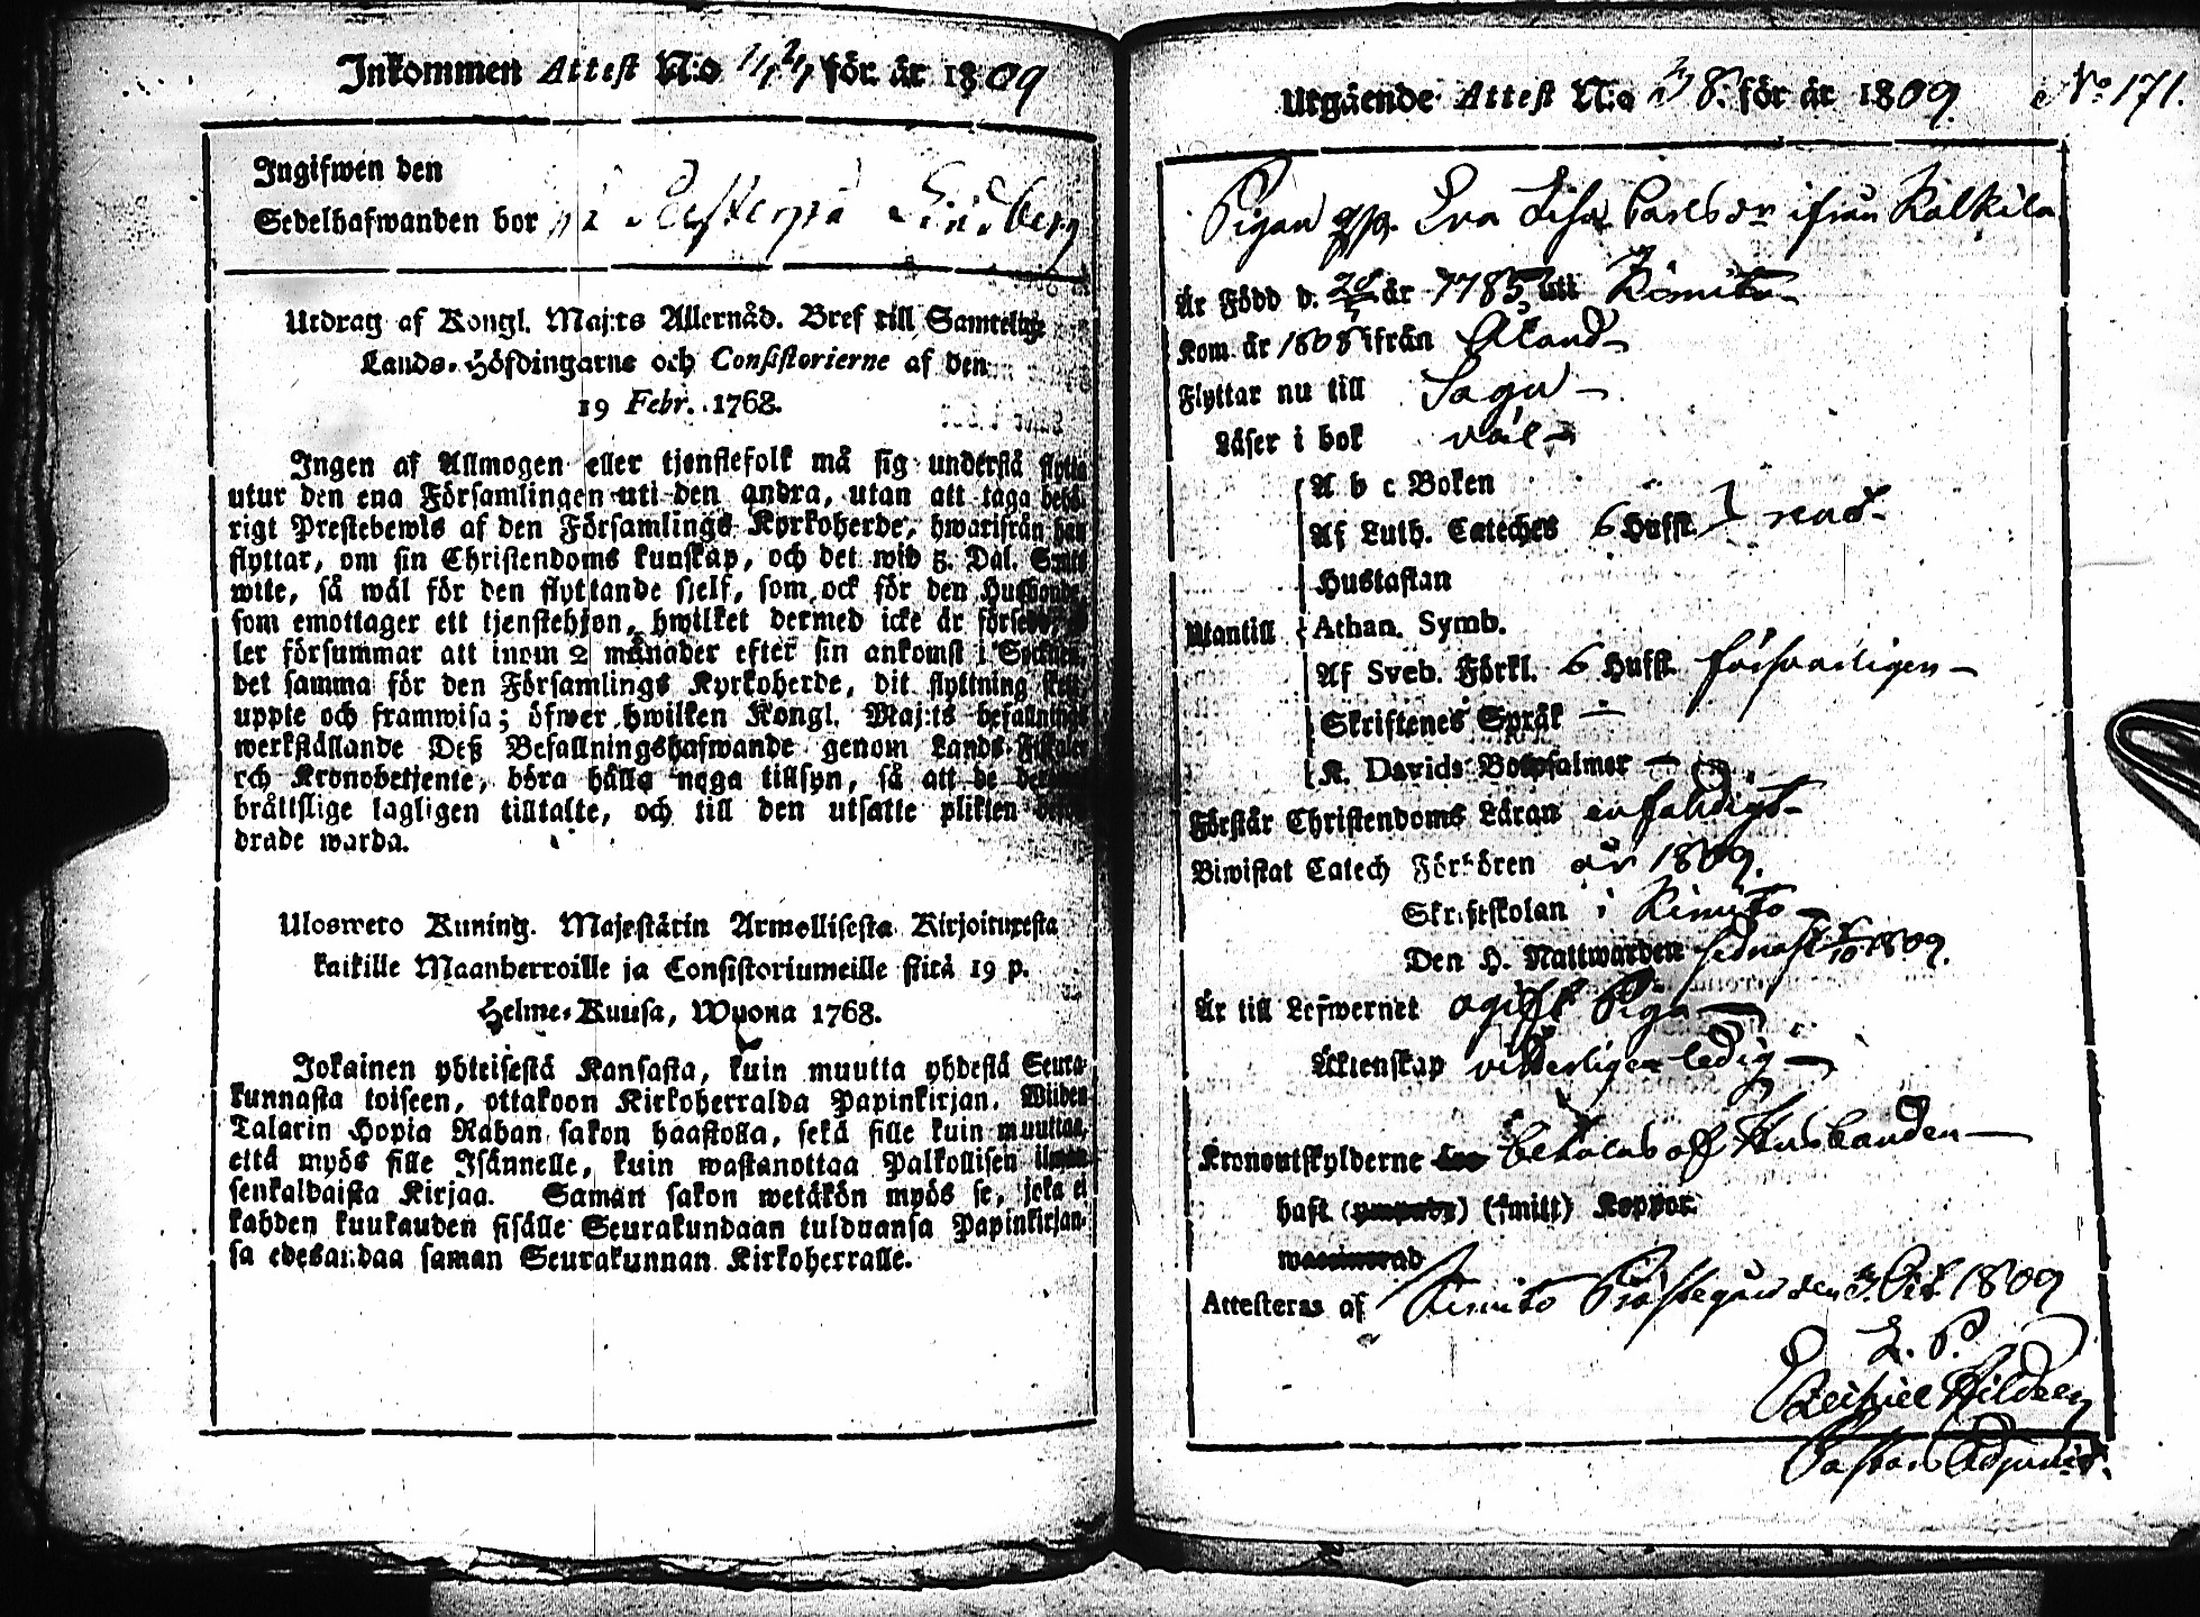 Inkommen Attest N:o för år 1809
Ingifwen den
Sedelhafwanden bor på
Utdrag af Kongl. Maj:ts Allernåd. Bref till Samtelige
Lands-Höfdingarne och Consistorierne af den
19 Febr. 1768.
Ingen af Allmogen eller tjenstefolk må sig understå flytta
utur den ena Församlingen uti den andra, utan att taga behö-
rigt Prestebewis af den Församlings Kyrkoherde, hwarifrån han
flyttar, om sin Christendoms kunskap, och det wid 5. Dal. Smts
wite, så wäl för den flyttande sjelf, som ock för den Husbonde,
som emottager ett tjenstehjon, hwilket dermed icke är försedt,
ler försummar att inom 2 månader efter sin ankomst i Socknen,
det samma för den Församlings Kyrkoherde, dit flyttning sker,
uppte och framwisa; öfwer hwilken Kongl. Maj:ts befallnings
werkställande Deß Befallningshafwande genom Lands-Fiskaler
och Kronobetjente, böra hålla noga tillsyn, så att de
bråttslige lagligen tilltalte, och till den utsatte plikten
drade warda.
Uloswero Kuning. Majestärin Armollisesta Kirjoituxesta
kaikille Maanherroille ja Consistoriumeille siitä 19 p.
Helme-Kuusa, Wuona 1768.
Jokainen yhteisestä Kansasta, kuin muutta yhdestä Seura-
kunnasta toiseen, ottakoon Kirkoherralda Papinkirjan. Wiiden
Talarin Hopia Rahan sakon haastolla, sekä sille kuin muuttaa,
että myös sille Isännelle, kuin wastanottaa Palkollisen ilman
senkaldaista Kirjaa. Saman sakon wetäkön myös se, joka ei
kahden kuukauden sisälle Seurakundaan tulduansa Papinkirjan-
sa edesandaa saman Seurakunnan Kirkoherralle.
Utgående Attest N:o 38. för år 1809. No 171.
Pigan Eva Lisa Carlsdr ifrån Kalkila
Är Född d. år 1785 uti Kimito
Kom år 1808 ifrån Åland
Flyttar nu till Sagu
Läser i bok väl
A b c Boken
Af Luth. Cateches 6 Hufst.
Hustaflan
Utantill Athan. Symb.
Af Sveb. Förkl. 6 Hufst. försvarligen
Skriftenes Språk
K. Davids Botpsalmer
Förstår Christendoms Läran enfaldigt
Biwistat Catech Förhören år 1809.
Skriftskolan i Kimito
Den H. Nattwarden sednast 1809.
Är till Lefwernet ogift Piga
Äktenskap vitterligen ledig
Kronoutskylderne betalas af Husbonden
haft () (smitt) Koppor
Attesteras af Kimito Prästegård den 3 Oct. 1809
L. P.
Pastors Adjunct.